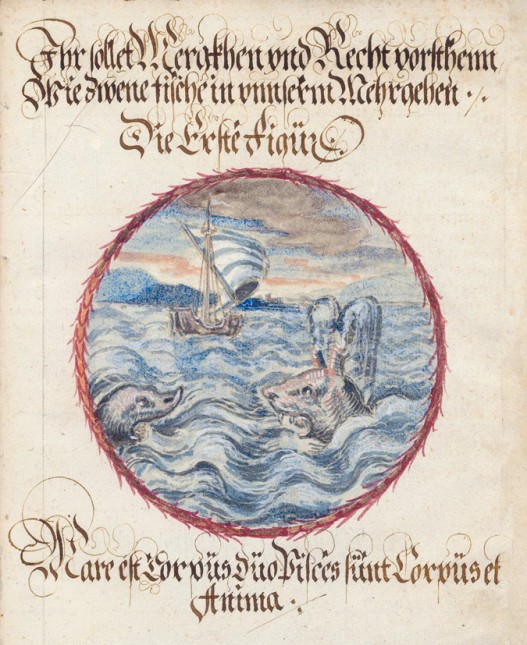 Ihr sollet Merckhen vnd Recht vorstehenn
Wie zwene fische in vnnserm Mehr gehen ./.
Die Erste Figür
Mare est Corpüs Düo Pisces sünt Corpüs et
Anima .